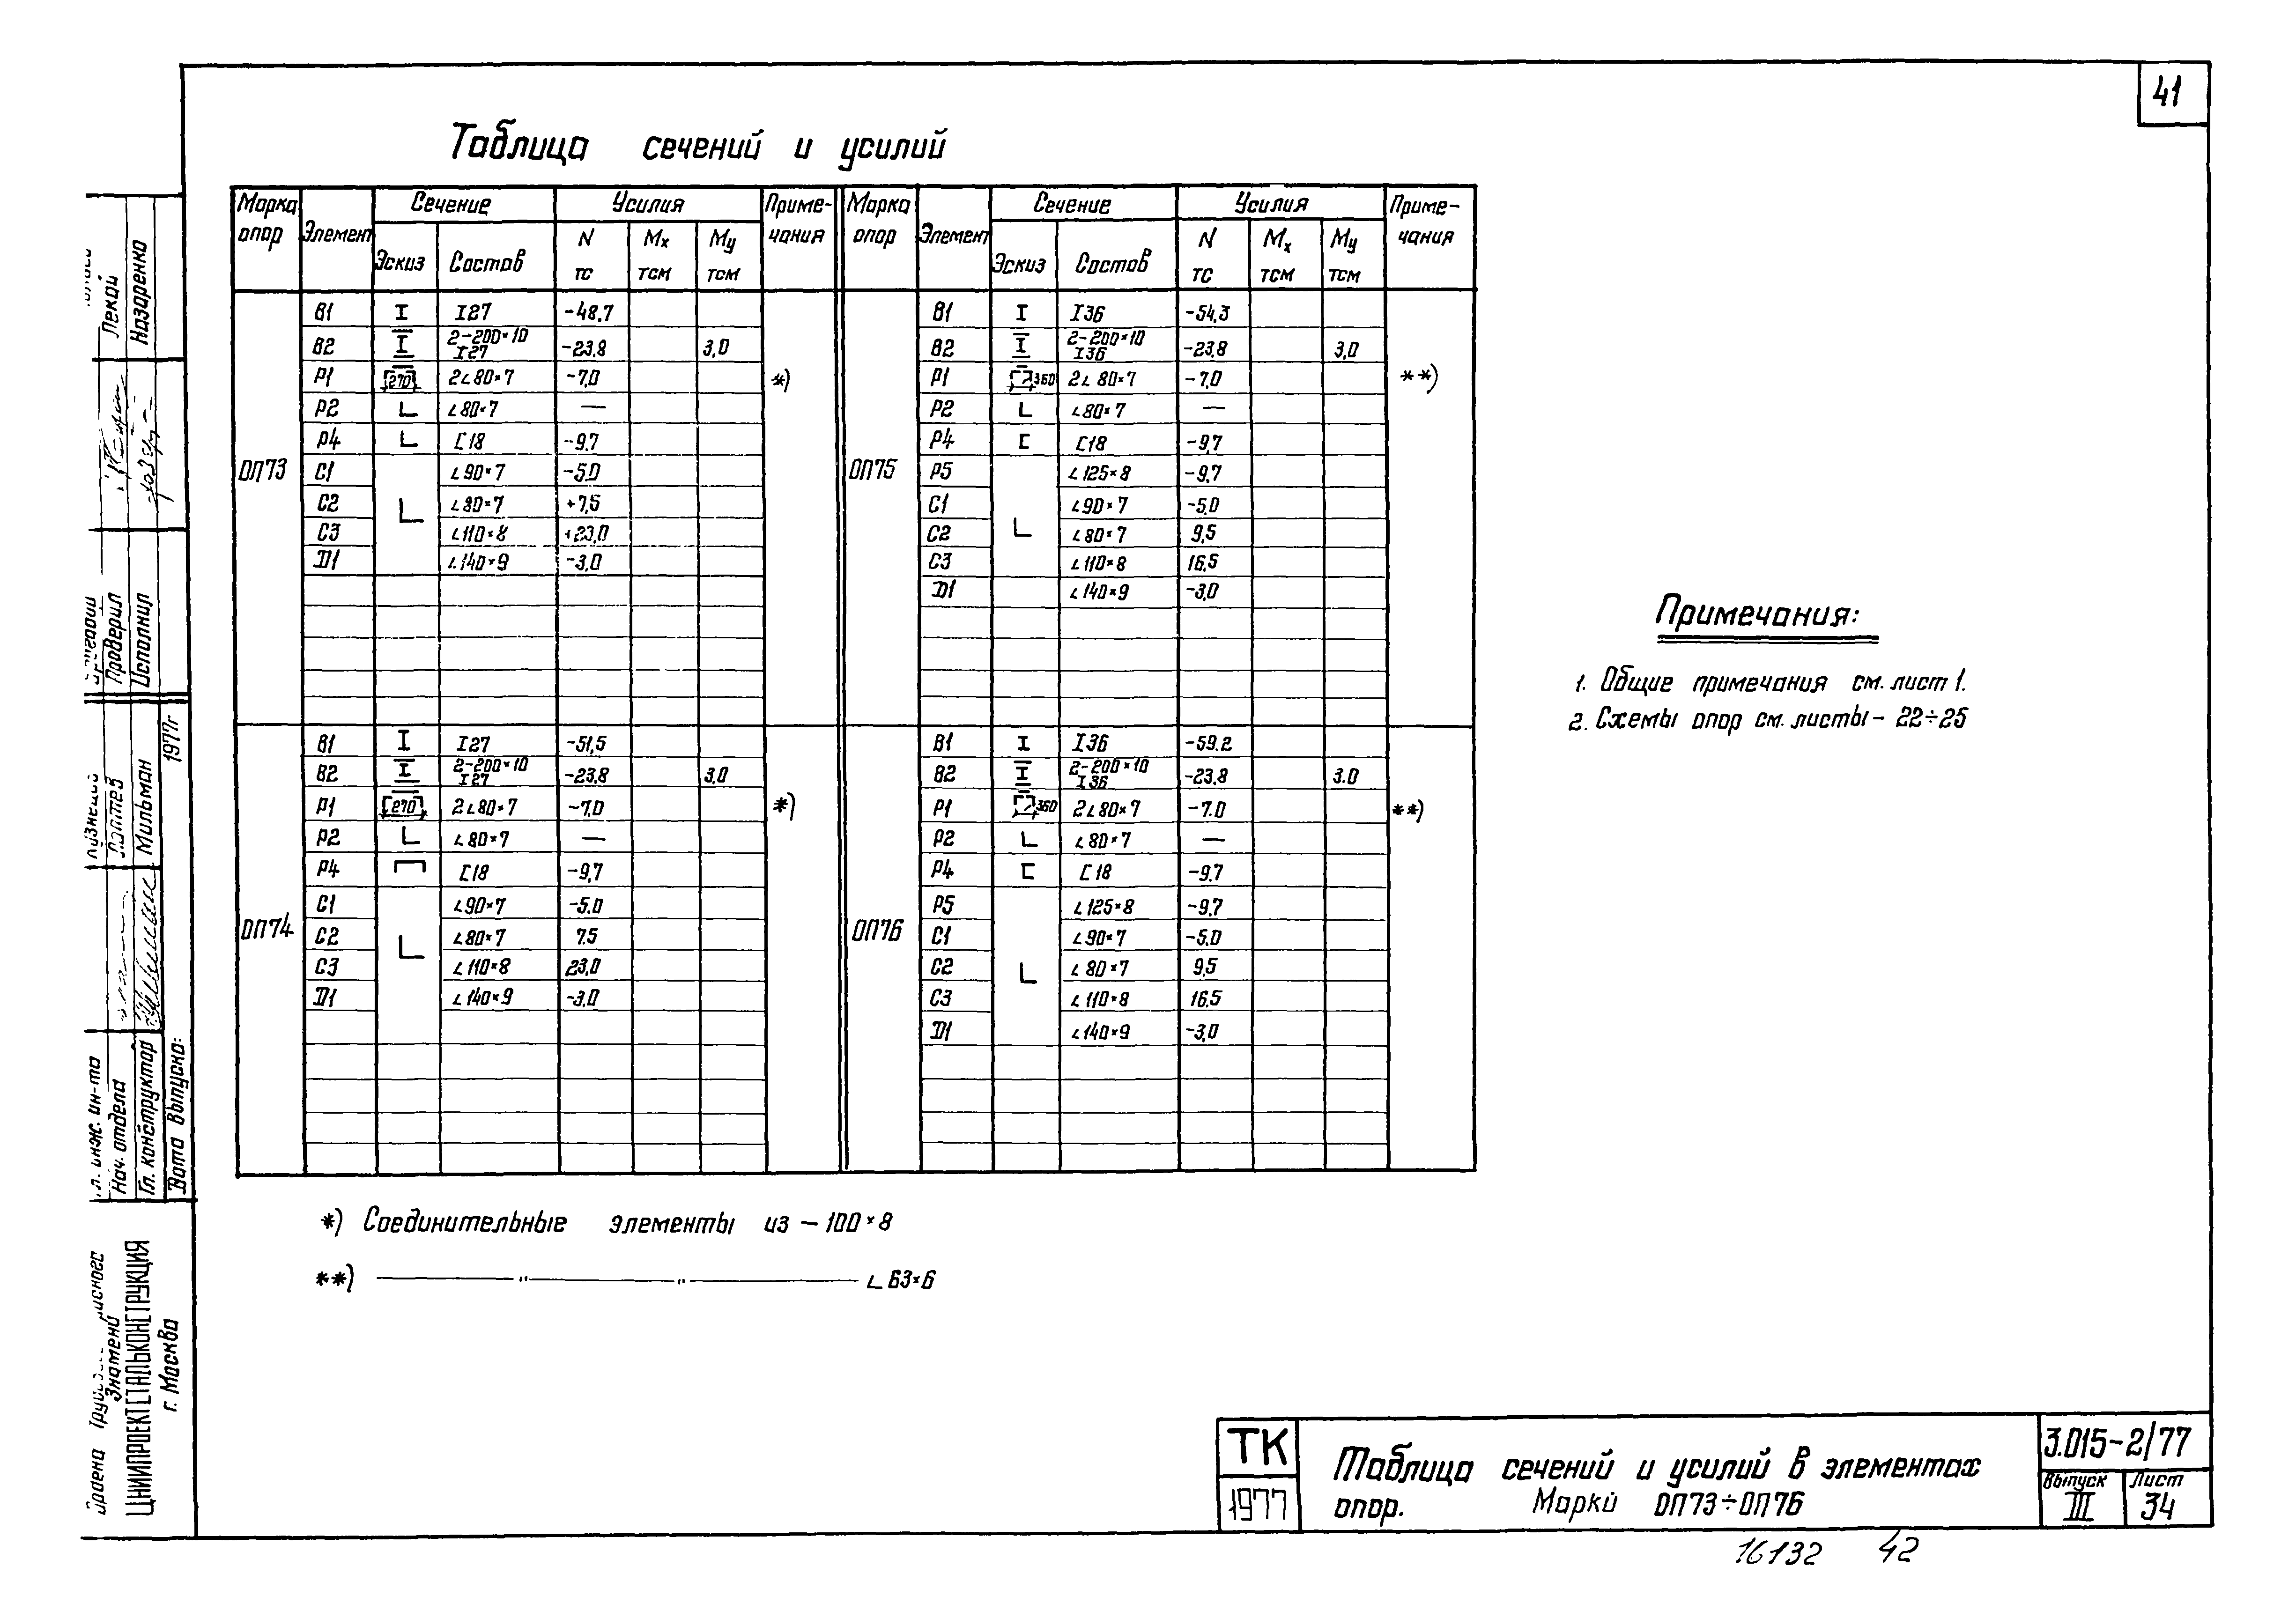 41
Таблица сечений и усилий
Марка опор | Элемент | Сечение | Усилия | Приме-чания | Марка опор | Элемент | Сечение | Усилия | Приме-чания
Эскиз | Состав | N тс | Mx тсм | My тсм | Эскиз | Состав | N тс | Mx тсм | My тсм
ОП73
В1 I I27 -48.7
В2 2-200×10 I27 -23.8 3,0
Р1 270 2∟80×7 -7,0 *)
Р2 ∟80×7 —
Р4 [18 -9.7
С1 ∟90×7 -5.0
С2 ∟80×7 +7,5
С3 ∟110×8 +23,0
Д1 ∟140×9 -3,0
ОП75
В1 I I36 -54,3
В2 2-200×10 I36 -23,8 3,0
Р1 360 2∟80×7 -7,0 **)
Р2 ∟80×7 —
Р4 [18 -9,7
Р5 ∟125×8 -9,7
С1 ∟90×7 -5,0
С2 ∟80×7 9,5
С3 ∟110×8 16,5
Д1 ∟140×9 -3,0
ОП74
В1 I I27 -51,5
В2 2-200×10 I27 -23.8 3.0
Р1 270 2∟80×7 -7,0 *)
Р2 ∟80×7 —
Р4 [18 -9,7
С1 ∟90×7 -5.0
С2 ∟80×7 7.5
С3 ∟110×8 23,0
Д1 ∟140×9 -3.0
ОП76
В1 I I36 -59.2
В2 2-200×10 I36 -23.8 3.0
Р1 360 2∟80×7 -7.0 **)
Р2 ∟80×7 —
Р4 [18 -9.7
Р5 ∟125×8 -9.7
С1 ∟90×7 -5,0
С2 ∟80×7 9,5
С3 ∟110×8 16.5
Д1 ∟140×9 -3,0
*) Соединительные элементы из – 100×8
**) —— " —— " —— ∟63×6
Примечания:
1. Общие примечания см. лист 1.
2. Схемы опор см. листы – 22÷25
ТК
1977
Таблица сечений и усилий в элементах
опор. Марки ОП73÷ОП76
3.015-2/77
Выпуск III
Лист 34
16132 42
Лекай
Назаренко
Проверил
Исполнил
1977г
Лаптев
Мильман
инж. ин-та
Нач. отдела
Гл. конструктор
Дата выпуска:
Знамени
ЦНИИПРОЕКТСТАЛЬКОНСТРУКЦИЯ
г. Москва